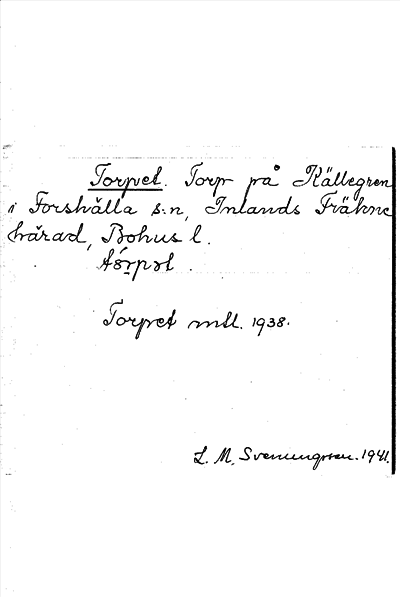 Torpet. Torp på Källegren
i Forshälla s:n, Inlands Fräkne
härad, Bohus l.
tå̀rpət.
Torpet mtl. 1938.
L. M. Svenungsson. 1941.